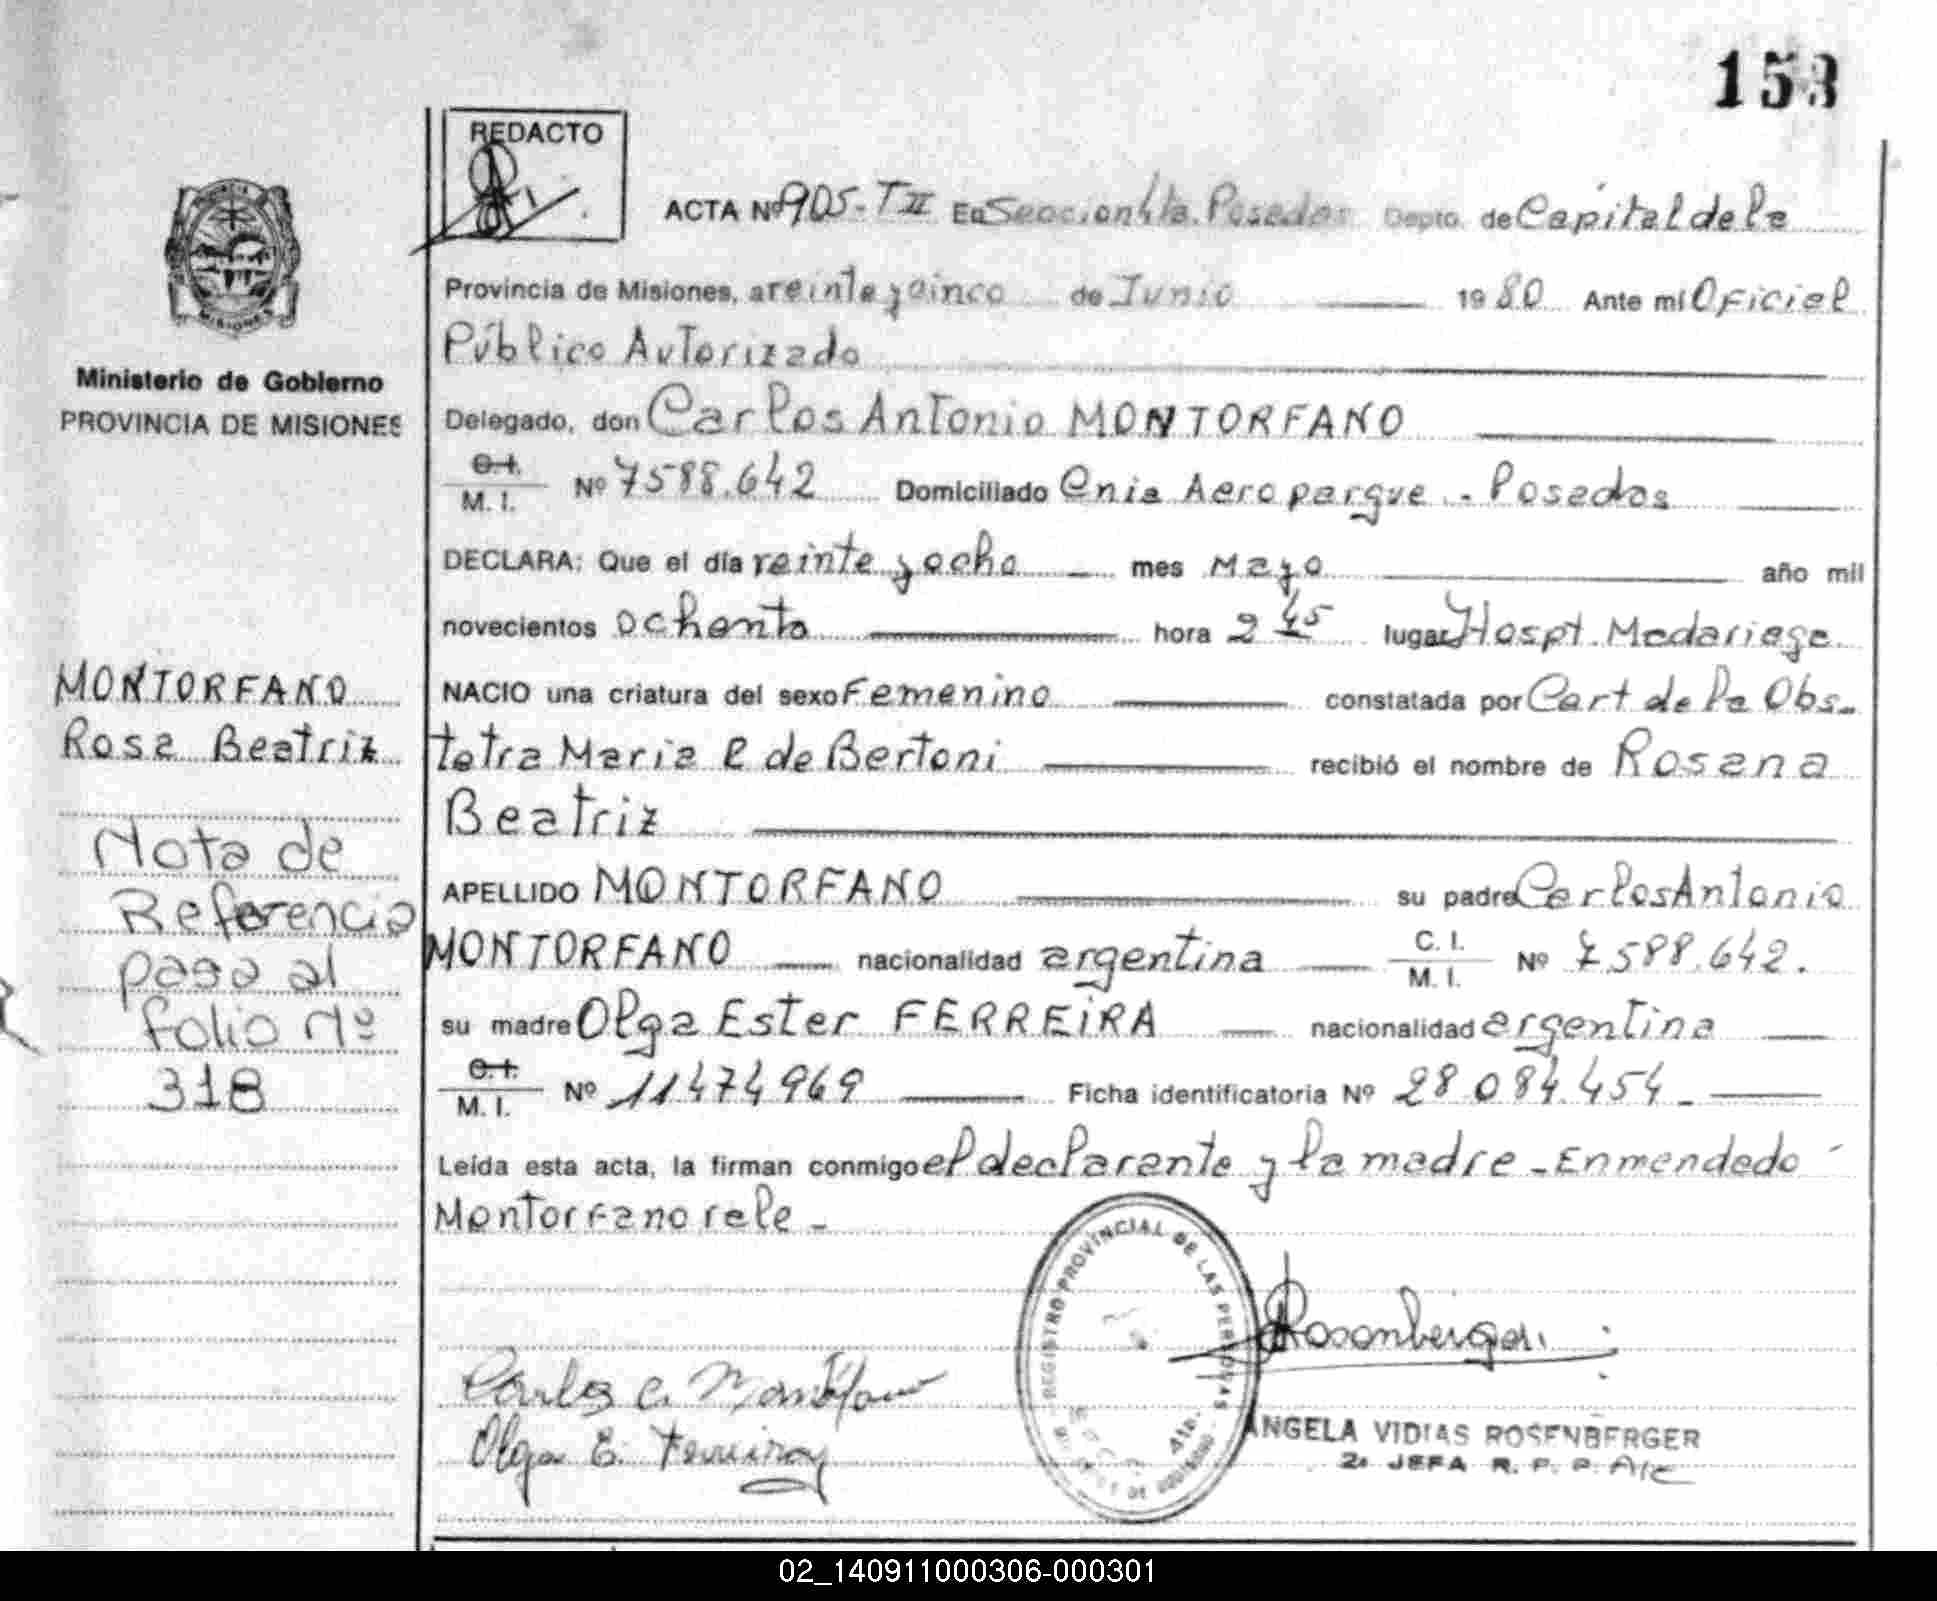 153
REDACTO
ACTA Nº 905-TII En Seccion 4ta. Posadas Depto. de Capital de la
Provincia de Misiones, a veinte y cinco de Junio 1980 Ante mí Oficial
Público Autorizado
Delegado, don Carlos Antonio MONTORFANO
C.I.
M. I. Nº 7588.642 Domiciliado Cnia Aeroparque - Posadas
DECLARA: Que el día veinte y ocho mes Mayo año mil
novecientos ochenta hora 2 45 lugar Hospt. Madariaga
NACIO una criatura del sexo Femenino constatada por Cert de la Obs-
tetra Maria E de Bertoni recibió el nombre de Rosana
Beatriz
APELLIDO MONTORFANO su padre Carlos Antonio
MONTORFANO nacionalidad argentina C. I.
M. I. Nº 7.588.642.
su madre Olga Ester FERREIRA nacionalidad argentina
C.I.
M. I. Nº 11474969 Ficha identificatoria Nº 28.084.454-
Leída esta acta, la firman conmigo el declarante y la madre - Enmendado
Montorfano vale -
Ministerio de Gobierno
PROVINCIA DE MISIONES
MISIONES
MONTORFANO
Rosa Beatriz
Nota de
Referencia
pasa al
folio Nº
318
Carlos A. Montorfano
Olga E. Ferreira
REGISTRO PROVINCIAL DE LAS PERSONAS
4ta.
Rosenberger
ANGELA VIDIAS ROSENBERGER
2a JEFA R. P. P. A/c
02_140911000306-000301